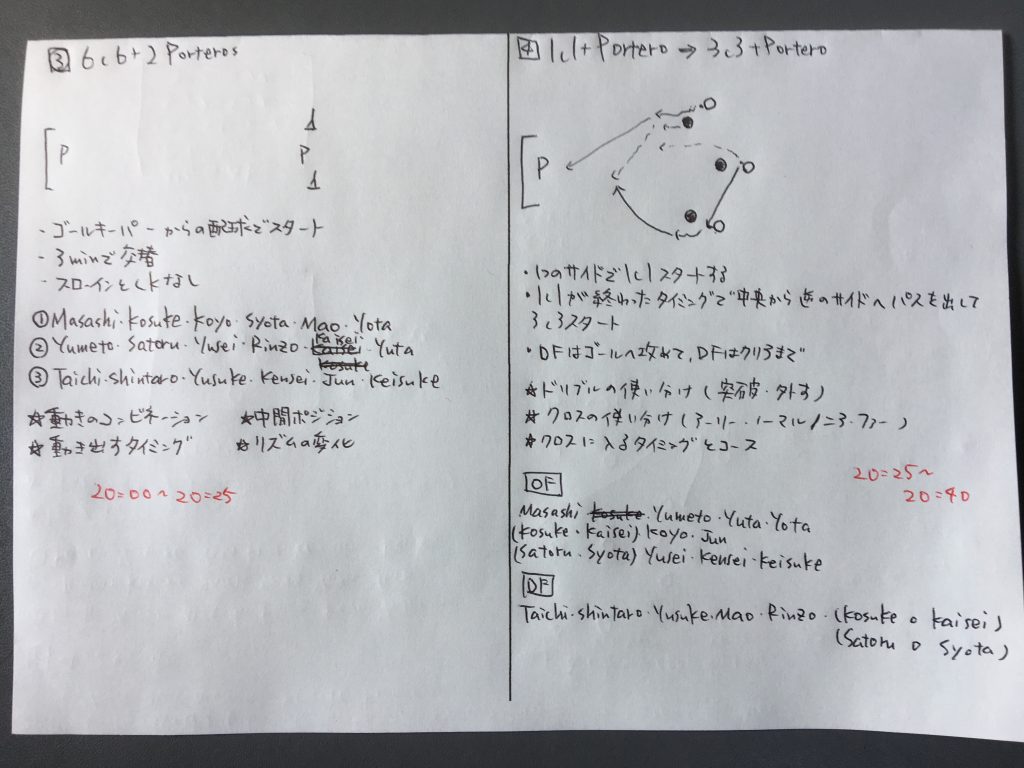 ③ 6c6+2 Porteros
P
P
・ゴールキーパーからの配球でスタート
・3minで交替
・スローインとCKなし
①Masashi・Kosuke・Koyo・Syota・Mao・Yota
②Yumeto・Satoru・Yusei・Rinzo・Kaisei・Yuta
③Taichi・Shintaro・Yusuke・Kensei・Jun・Keisuke
☆動きのコンビネーション ☆中間ポジション
☆動き出すタイミング ☆リズムの変化
20=00~20=25
④ 1c1+Portero→3c3+Portero
P
・1つのサイドで1c1スタートする
・1c1が終わったタイミングで中央から逆のサイドへパスを出して
3c3スタート
・DFはゴールへ攻めて,DFはクリアまで
☆ドリブルの使い分け(突破・外す)
☆クロスの使い分け(アーリー・ノーマル/ニア・ファー)
☆クロスに入るタイミングとコース
20=25~
20=40
OF
Masashi Kosuke・Yumeto・Yuta・Yota
(Kosuke・Kaisei) Koyo・Jun
(Satoru・Syota) Yusei・Kensei・Keisuke
DF
Taichi・Shintaro・Yusuke・Mao・Rinzo・(Kosuke o Kaisei)
(Satoru o Syota)